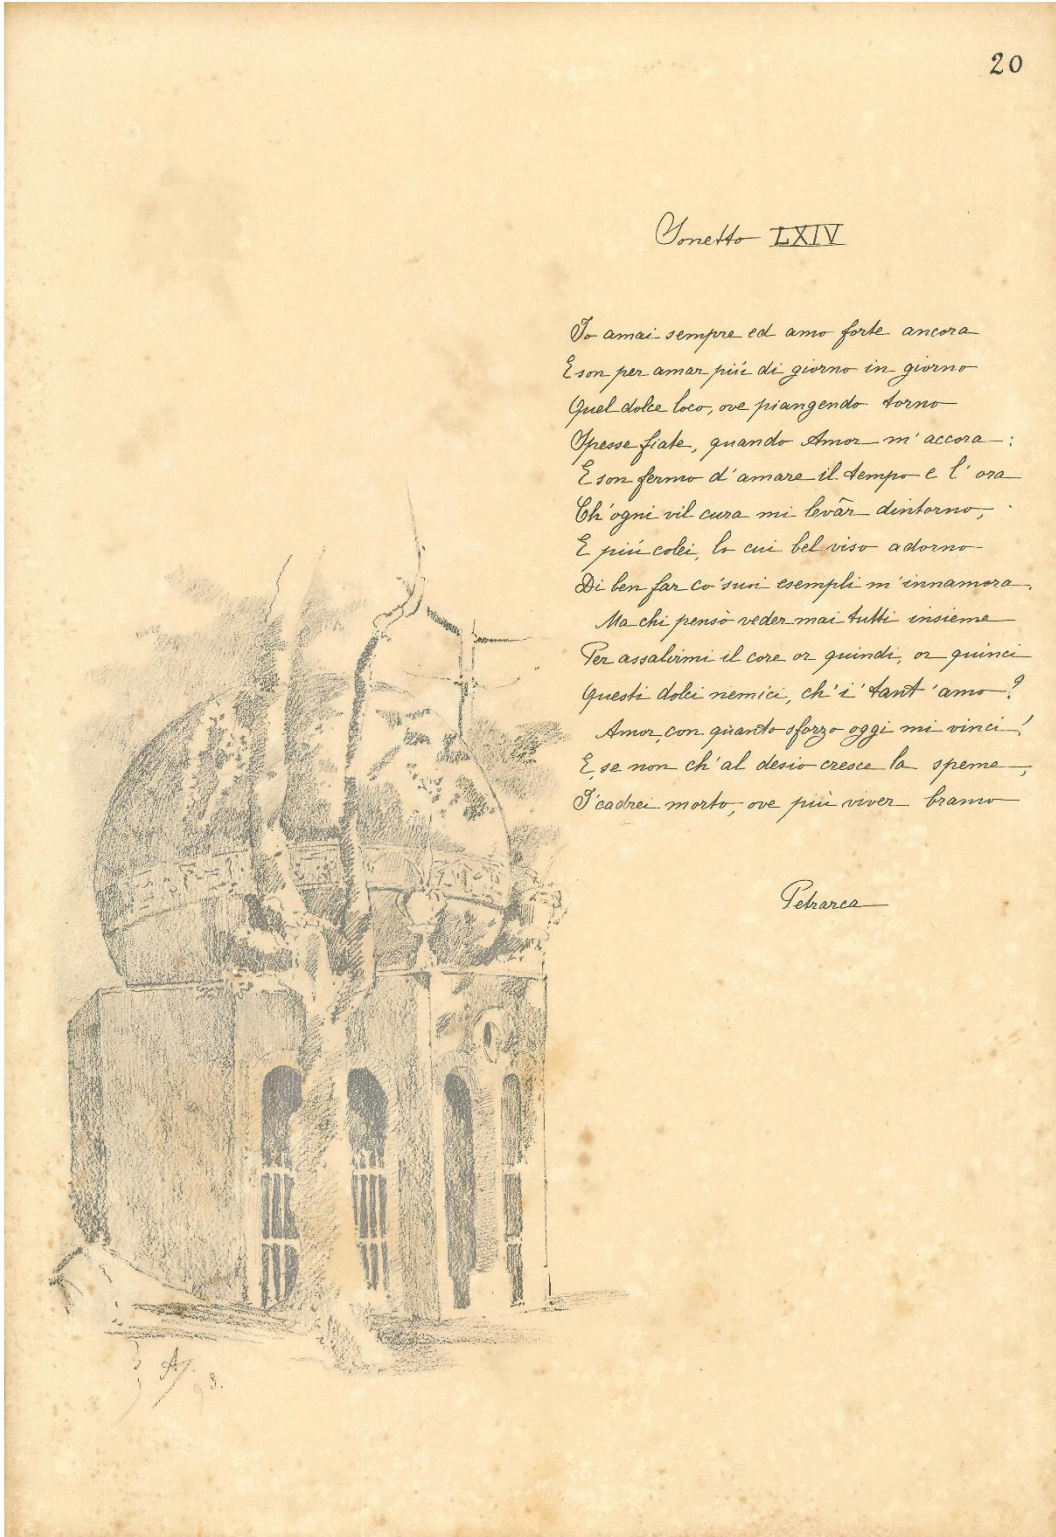 20
Sonetto LXIV
Io amai sempre ed amo forte ancora
E son per amar più di giorno in giorno
Quel dolce loco, ove piangendo torno
Spesse fiate, quando Amor m'accora:
E son fermo d'amare il tempo e l'ora
Ch'ogni vil cura mi levâr dintorno,
E più colei, lo cui bel viso adorno
Di ben far co'suoi esempli m'innamora.
Ma chi pensò veder mai tutti insieme
Per assalirmi il core or quindi, or quinci
Questi dolci nemici, ch'i'tant'amo?
Amor, con quanto sforzo oggi mi vinci!
E, se non ch'al desio cresce la speme,
I'cadrei morto, ove più viver bramo
Petrarca
93.